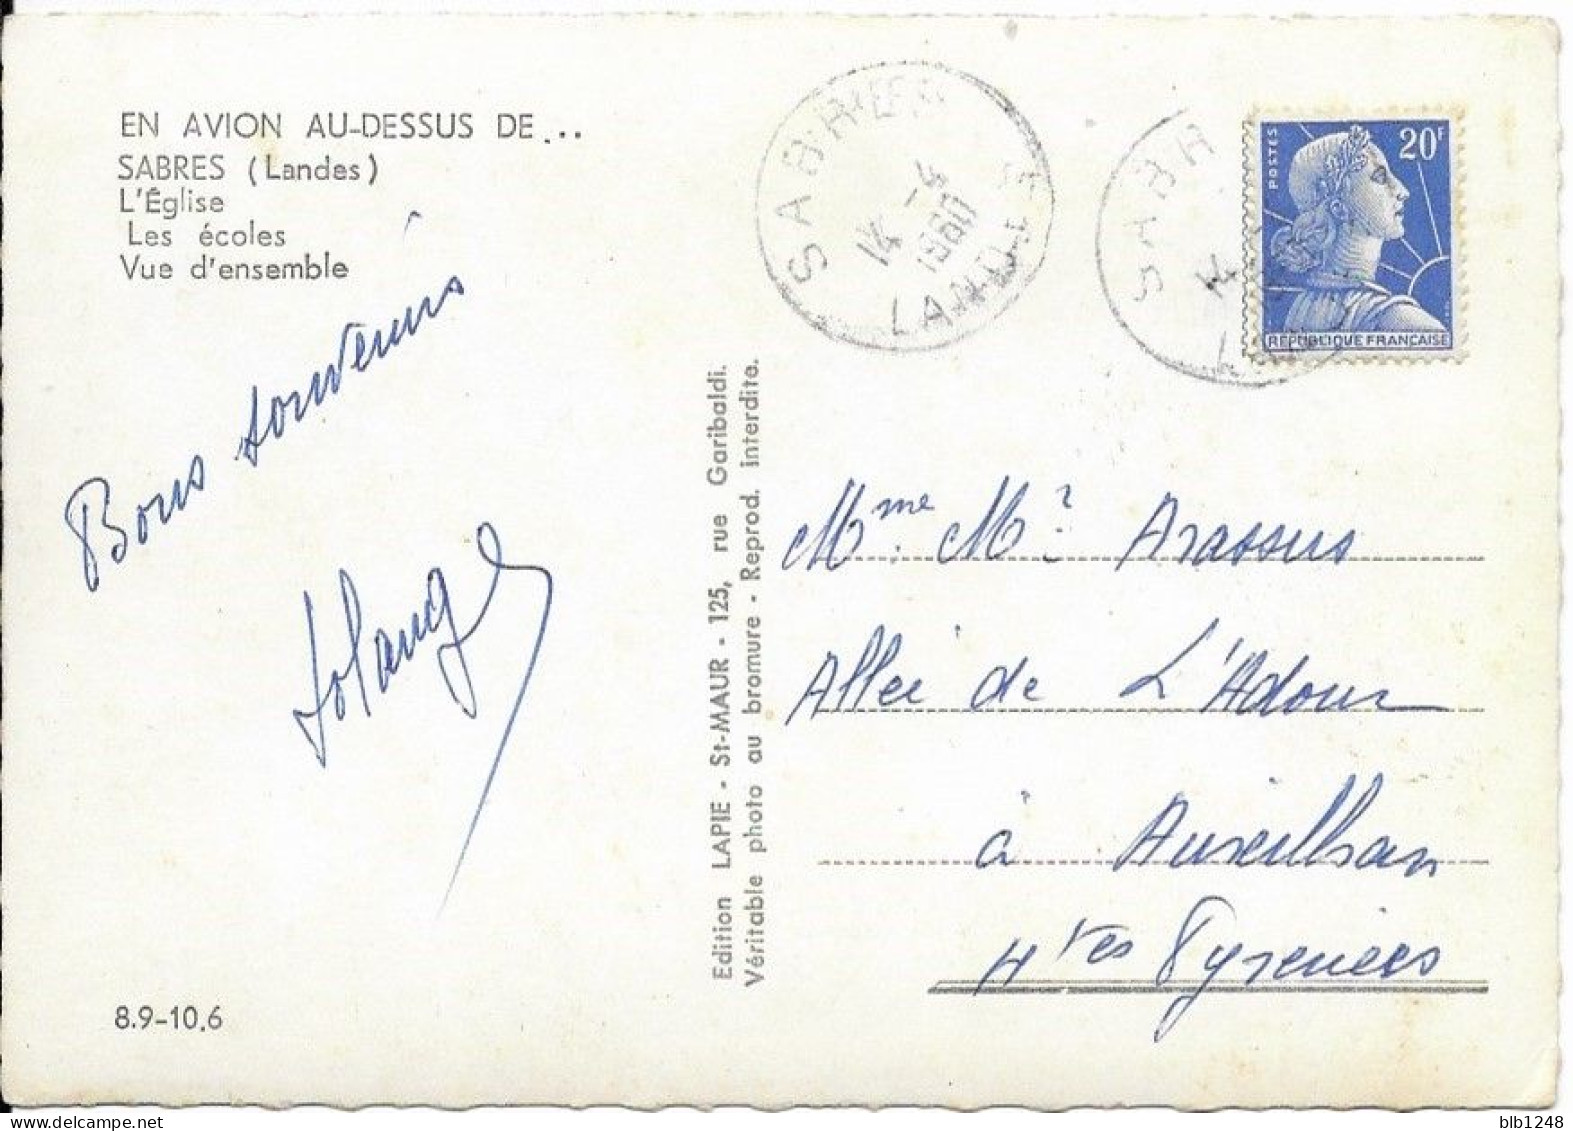 EN AVION AU-DESSUS DE...
SABRES (Landes)
L'Église
Les écoles
Vue d'ensemble
Bons souvenirs
Solange
8.9-10.6
Edition LAPIE - St-MAUR - 125, rue Garibaldi.
Véritable photo au bromure - Reprod. interdite.
SABRES
14 -4
1960
LANDES
SABR
14
POSTES
20F
REPUBLIQUE FRANÇAISE
Mme M? Arassus
Allée de L'Adour
à Aureilhan
Htes Pyrenees
blb1248